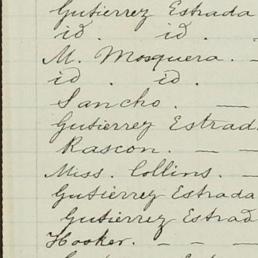 Gutierrez Estrada
id. id.
M. Mosquera. -
id. id.
Sancho. —
Gutierrez Estrad
Rascon. — —
Miss. Collins. —
Gutierrez Estrada
Gutierrez Estrad
Hooker. - - —